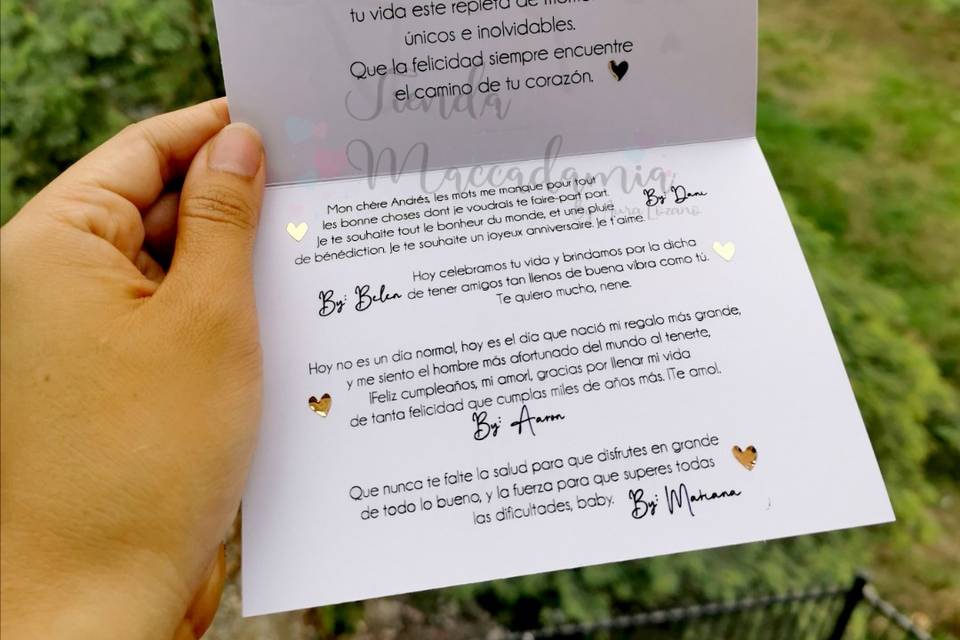 tu vida este repleta de
únicos e inolvidables.
Que la felicidad siempre encuentre
el camino de tu corazón.
Tienda
Maccadamia
Lozano
Mon chère Andrés, les mots me manque pour tout
les bonne choses dont je voudrais te faire part part.
Je te souhaite tout le bonheur du monde, et une pluie
de bénédiction. Je te souhaite un joyeux anniversaire. Je t'aime.
By Dani
Hoy celebramos tu vida y brindamos por la dicha
de tener amigos tan llenos de buena vibra como tú.
Te quiero mucho, nene.
By: Belen
Hoy no es un día normal, hoy es el día que nació mi regalo más grande,
y me siento el hombre más afortunado del mundo al tenerte,
¡Feliz cumpleaños, mi amor!, gracias por llenar mi vida
de tanta felicidad que cumplas miles de años más. ¡Te amo!.
By: Aaron
Que nunca te falte la salud para que disfrutes en grande
de todo lo bueno, y la fuerza para que superes todas
las dificultades, baby.
By: Mariana